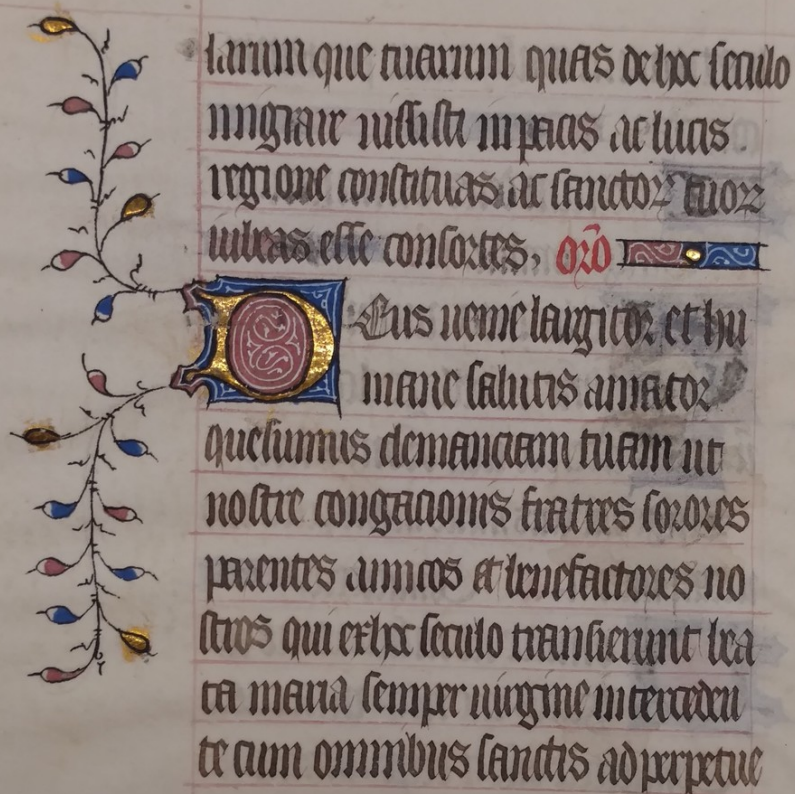 larum que tuarum quas de hoc seculo
migrare iussisti in pacis ac lucis
regione constituas ac sanctoꝝ tuoꝝ
iubeas esse consortes, oro
Deus uenie largitor et hu
mane salutis amator
quesumus clemanciam tuam ut
nostre congacionis fratres sorores
parentes amicos et benefactores no
stros qui ex hoc seculo transierunt bea
ta maria semper uirgine interceden
te cum omnibus sanctis ad perpetue